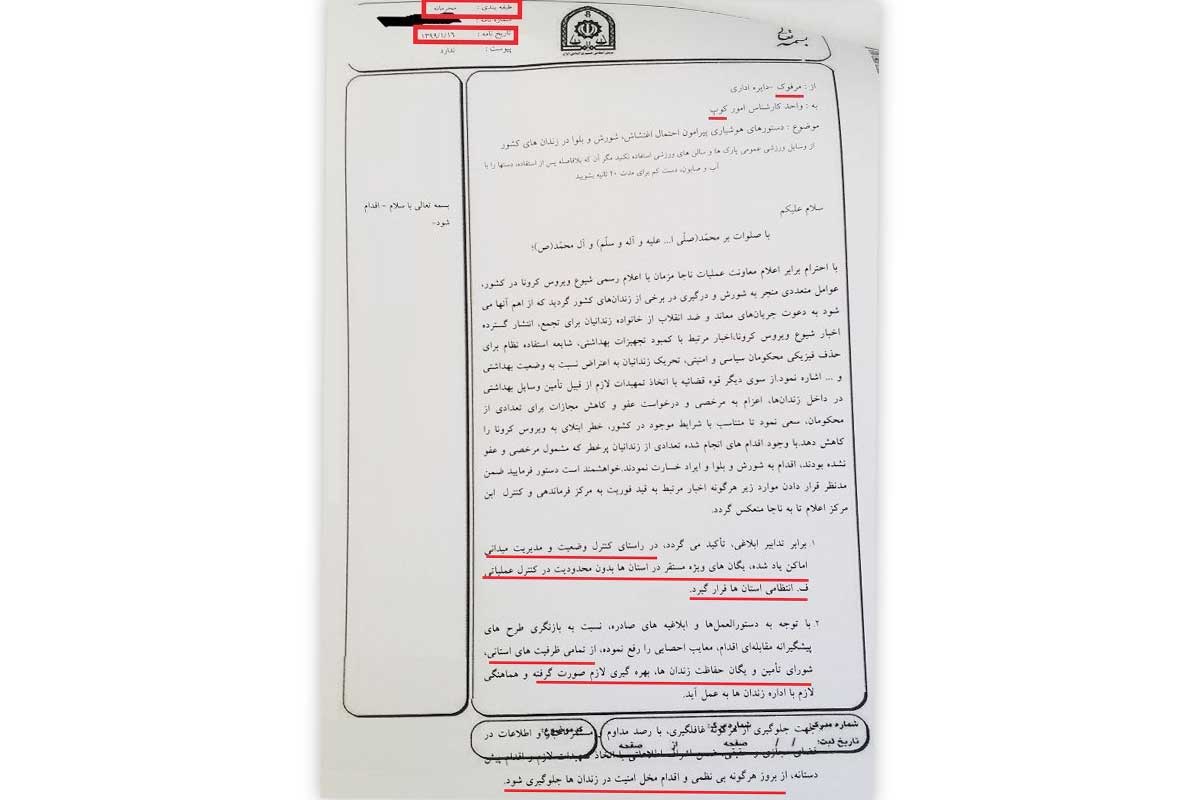 طبقه بندی : محرمانه
شماره نامه :
تاریخ نامه : ۱۳۹۹/۱/۱۶
پیوست : ندارد
بسمه تعالی
از : مرفوک -دایره اداری
به : واحد کارشناس امور کوپ
موضوع : دستورهای هوشیاری پیرامون احتمال اغتشاش، شورش و بلوا در زندان های کشور
از وسایل ورزشی عمومی پارک ها و سالن های ورزشی استفاده نکنید مگر آن که بلافاصله پس از استفاده، دستها را با
آب و صابون، دست کم برای مدت ۲۰ ثانیه بشویید
بسمه تعالی با سلام - اقدام
شود-
سلام علیکم
با صلوات بر محمّد(صلّی ا... علیه و آله و سلّم) و آل محمّد(ص)؛
با احترام برابر اعلام معاونت عملیات ناجا مزمان با اعلام رسمی شیوع ویروس کرونا در کشور،
عوامل متعددی منجر به شورش و درگیری در برخی از زندان‌های کشور گردید که از اهم آنها می
شود به دعوت جریان‌های معاند و ضد انقلاب از خانواده زندانیان برای تجمع، انتشار گسترده
اخبار شیوع ویروس کرونا،اخبار مرتبط با کمبود تجهیزات بهداشتی، شایعه استفاده نظام برای
حذف فیزیکی محکومان سیاسی و امنیتی، تحریک زندانیان به اعتراض نسبت به وضعیت بهداشتی
و ... اشاره نمود.از سوی دیگر قوه قضائیه با اتخاذ تمهیدات لازم از قبیل تأمین وسایل بهداشتی
در داخل زندان‌ها، اعزام به مرخصی و درخواست عفو و کاهش مجازات برای تعدادی از
محکومان، سعی نمود تا متناسب با شرایط موجود در کشور، خطر ابتلای به ویروس کرونا را
کاهش دهد.با وجود اقدام های انجام شده تعدادی از زندانیان پرخطر که مشمول مرخصی و عفو
نشده بودند، اقدام به شورش و بلوا و ایراد خسارت نمودند.خواهشمند است دستور فرمایید ضمن
مدنظر قرار دادن موارد زیر هرگونه اخبار مرتبط به قید فوریت به مرکز فرماندهی و کنترل این
مرکز اعلام تا به ناجا منعکس گردد.
۱. برابر تدابیر ابلاغی، تأکید می گردد، در راستای کنترل وضعیت و مدیریت میدانی
اماکن یاد شده، یگان های ویژه مستقر در استان ها بدون محدودیت در کنترل عملیاتی
ف. انتظامی استان ها قرار گیرد.
۲. با توجه به دستورالعمل‌ها و ابلاغیه های صادره، نسبت به بازنگری طرح های
پیشگیرانه مقابله‌ای اقدام، معایب احصایی را رفع نموده، از تمامی ظرفیت های استانی،
شورای تأمین و یگان حفاظت زندان ها، بهره گیری لازم صورت گرفته و هماهنگی
لازم با اداره زندان ها به عمل آید.
شماره مدرک: شماره برگ: کد موضوع:
تاریخ ثبت: / / صفحه از صفحه
جهت جلوگیری از هرگونه غافلگیری، با رصد مداوم و اطلاعات در
فضای مجازی و حقیقی، ضمن اشراف اطلاعاتی با اتخاذ تمهیدات لازم و اقدام پیش
دستانه، از بروز هرگونه بی نظمی و اقدام مخل امنیت در زندان ها جلوگیری شود.